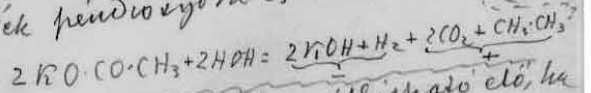 ék
2KO·CO·CH₃+2HOH= 2KOH+H₂ + 2CO₂ + CH₃·CH₃
− +
elő, ha